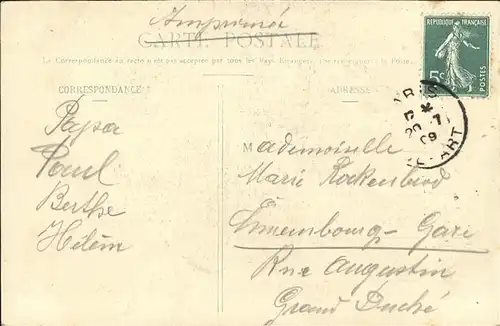 Imprimé
CARTE POSTALE
La Correspondance au recto n'est pas acceptée par tous les Pays Etrangers
CORRESPONDANCE
ADRESSE
RÉPUBLIQUE FRANÇAISE
5c
POSTES
20 -7
09
DÉPART
Papa
Paul
Berthe
Hélèn
Mademoiselle
Marie
Luxembourg-Gare
Rue Augustin
Grand Duché